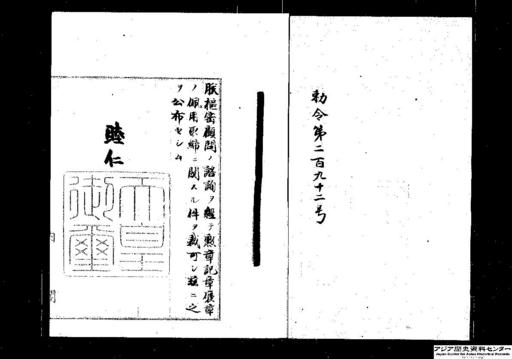 勅令第二百九十二号
朕樞密顧問ノ諮詢ヲ經テ勲章記章褒章
ノ佩用取締ニ関スル件ヲ裁可シ玆ニ之
ヲ公布セシム
睦仁
天皇御璽
内閣
アジア歴史資料センター
Japan Center for Asian Historical Records